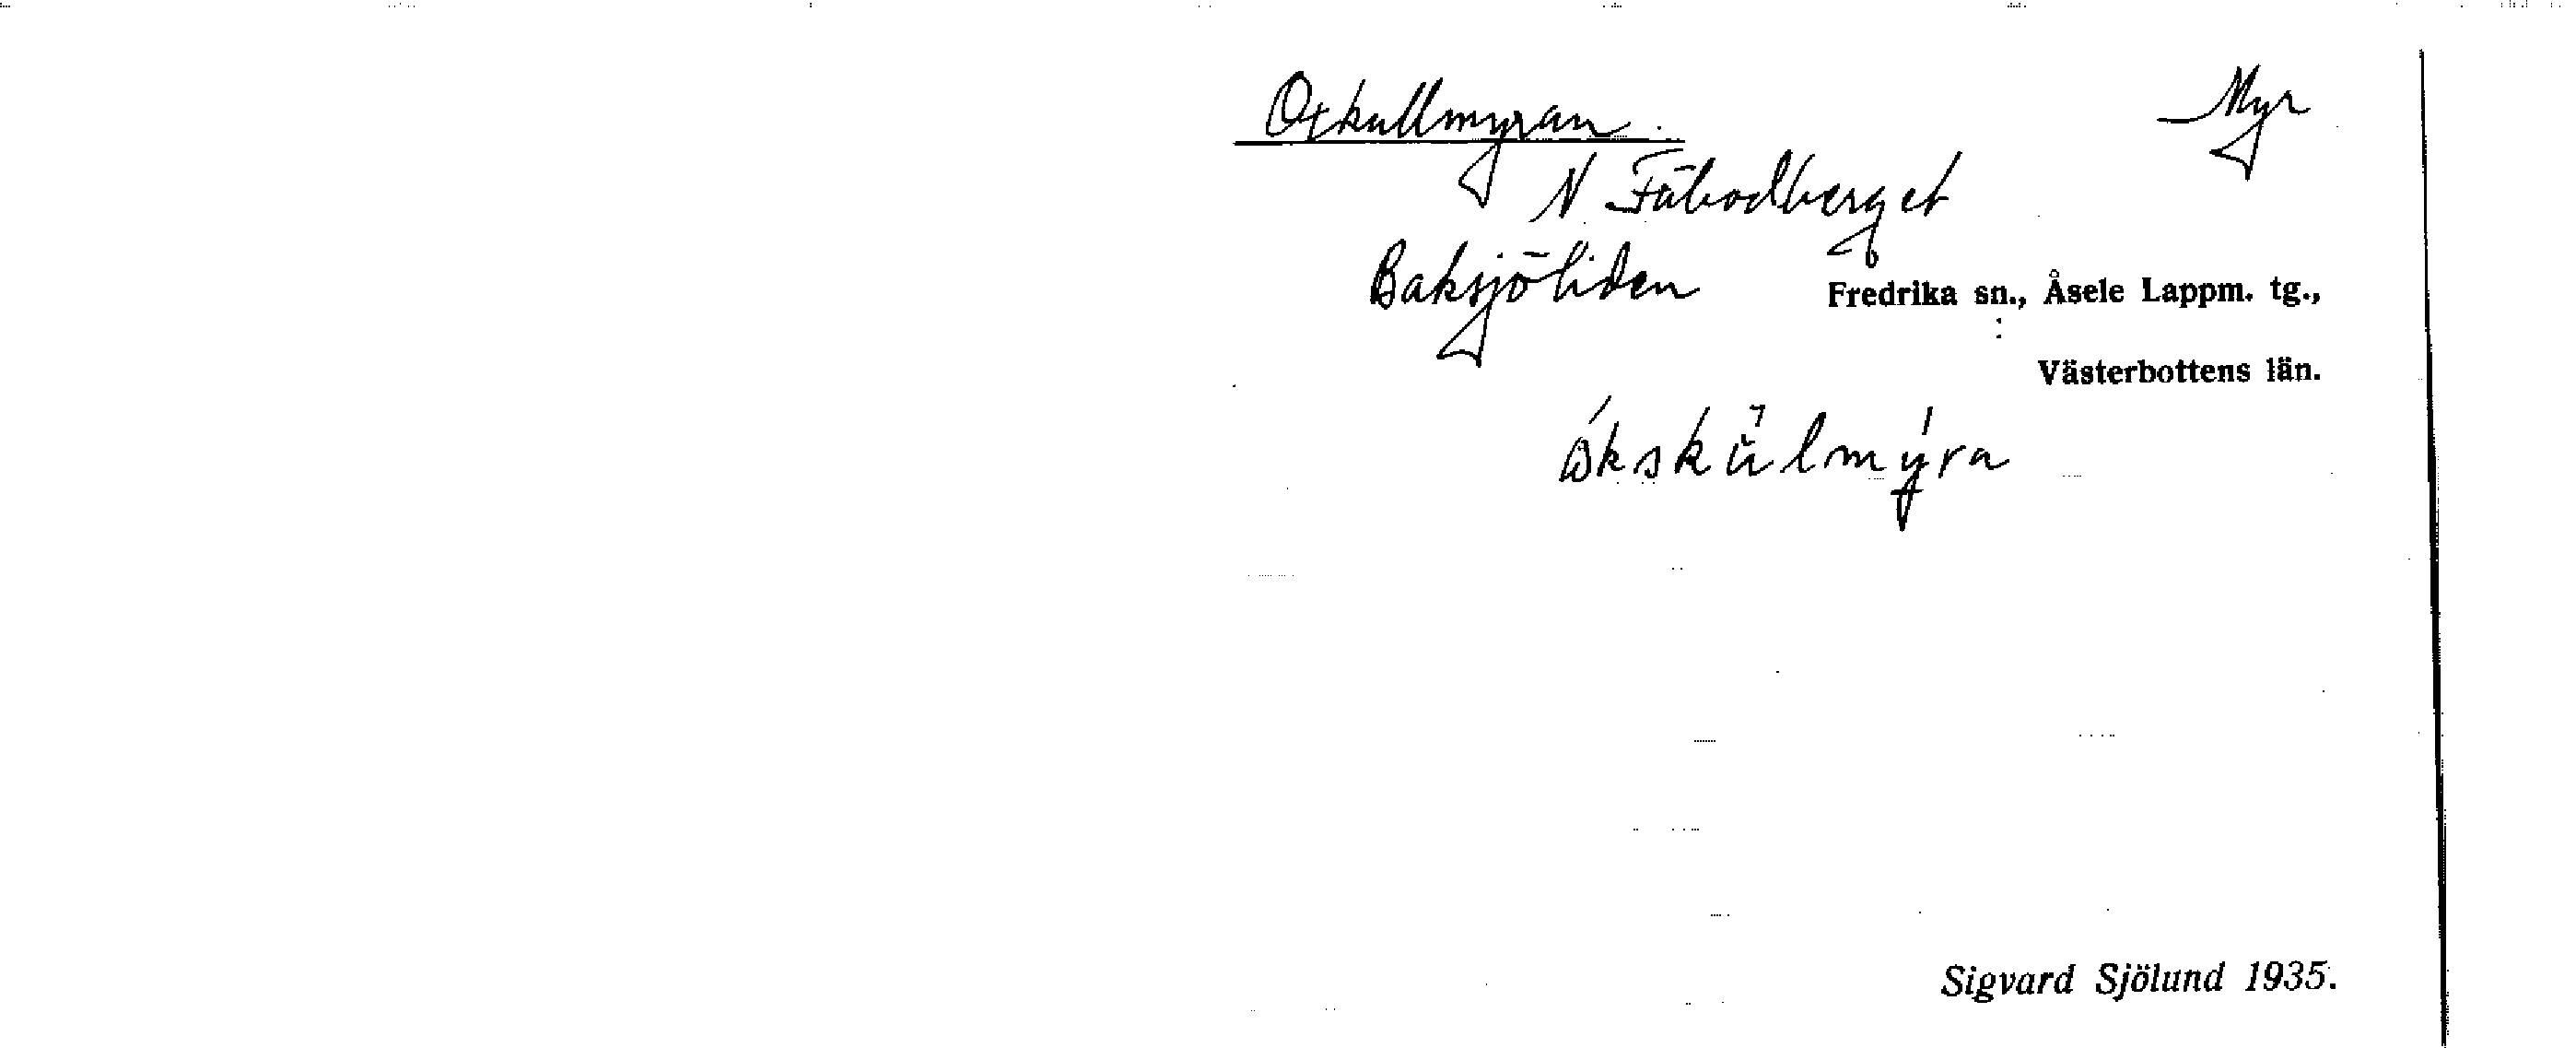 Oxkullmyran. Myr
N Fäbodberget
Baksjöliden Fredrika sn., Åsele Lappm. tg.,
Västerbottens län.
Sigvard Sjölund 1935.